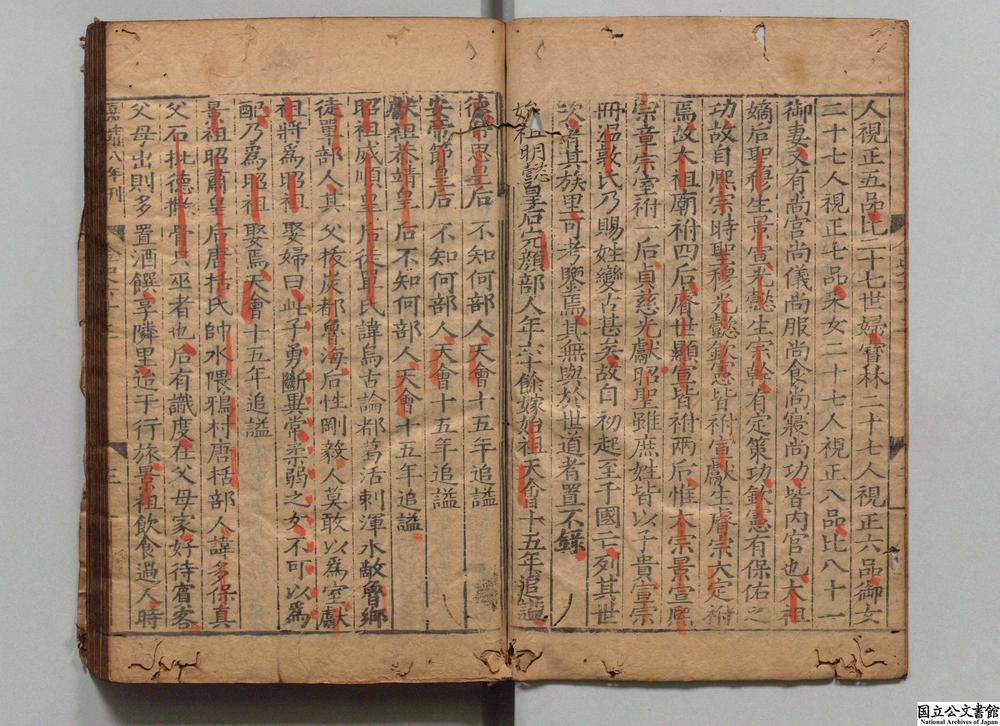 人視正五品比二十七世婦寳林二十七人視正六品御女
二十七人視正七品采女二十七人視正八品比八十一
御妻又有尚宫尚儀尚服尚食尚寢尚功皆内官也太祖
嫡后聖穆生景宣光懿生宗幹有定策功欽憲有保佑之
功故自熙宗時聖穆光懿欽憲皆祔宣獻生睿宗大定祔
焉故太祖廟祔四后睿世顯宣皆祔兩后惟太宗景宣熙
宗章宗室祔一后貞慈光獻昭聖雖庶姓皆以子貴宣宗
冊温敦氏乃賜姓變古甚矣故自初起至于國亡列其世
次著其族里可考鑒焉其無與於世道者置不録
始祖明懿皇后完顔部人年六十餘嫁始祖天會十五年追謚
德帝思皇后不知何部人天會十五年追謚
安帝節皇后不知何部人天會十五年追謚
獻祖恭靖皇后不知何部人天會十五年追謚
昭祖威順皇后徒單氏諱烏古論都葛活剌渾水敵魯鄉
徒單部人其父拔炭都魯海后性剛毅人莫敢以爲室獻
祖將爲昭祖娶婦曰此子勇斷異常柔弱之女不可以爲
配乃爲昭祖娶焉天會十五年追謚
景祖昭肅皇后唐括氏帥水隈鴉村唐括部人諱多保真
父石批德撒骨只巫者也后有識度在父母家好待賓客
父母出則多置酒饌享隣里迨于行旅景祖飲食過人時
嘉靖八年刊
三
国立公文書館
National Archives of Japan